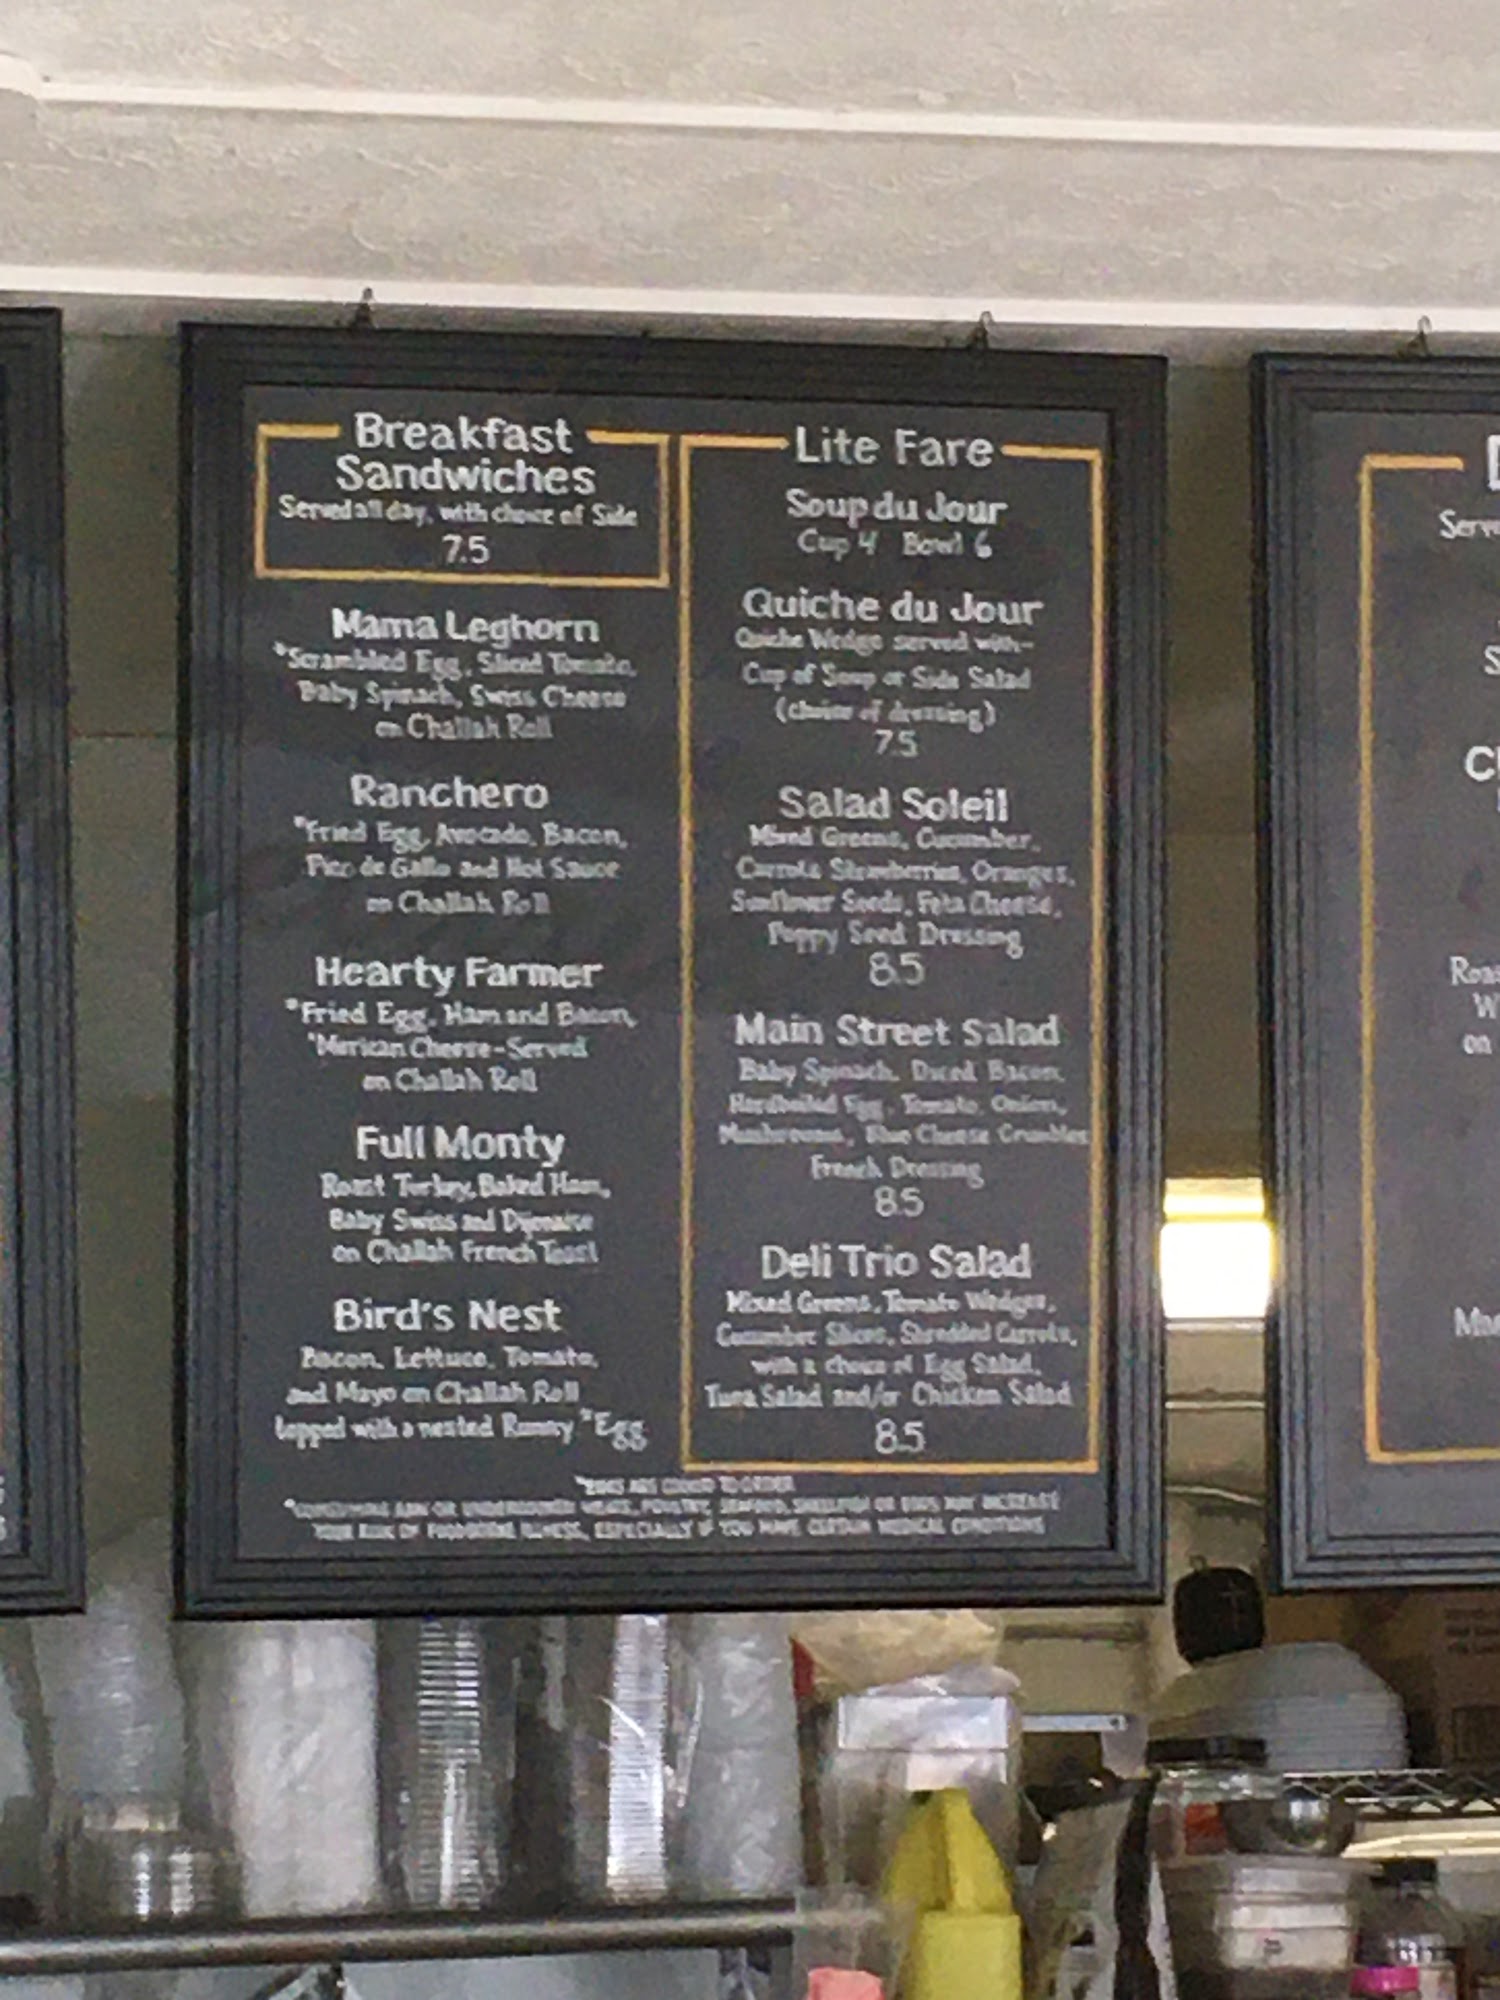 Breakfast
Sandwiches
Served all day, with choice of Side
7.5
Mama Leghorn
*Scrambled Egg, Sliced Tomato,
Baby Spinach, Swiss Cheese
on Challah Roll
Ranchero
*Fried Egg, Avocado, Bacon,
Pico de Gallo and Hot Sauce
on Challah Roll
Hearty Farmer
*Fried Egg, Ham and Bacon,
'Merican Cheese-Served
on Challah Roll
Full Monty
Roast Turkey, Baked Ham,
Baby Swiss and Dijonaise
on Challah French Toast
Bird's Nest
Bacon, Lettuce, Tomato,
and Mayo on Challah Roll
topped with a nested Runny *Egg
Lite Fare
Soup du Jour
Cup 4 Bowl 6
Quiche du Jour
Quiche Wedge served with-
Cup of Soup or Side Salad
(choice of dressing)
7.5
Salad Soleil
Mixed Greens, Cucumber,
Carrots Strawberries, Oranges,
Sunflower Seeds, Feta Cheese,
Poppy Seed Dressing
8.5
Main Street Salad
Baby Spinach, Diced Bacon,
Hardboiled Egg, Tomato, Onion,
Mushrooms, Blue Cheese Crumbles
French Dressing
8.5
Deli Trio Salad
Mixed Greens, Tomato Wedges,
Cucumber Slices, Shredded Carrots,
with a choice of Egg Salad,
Tuna Salad and/or Chicken Salad
8.5
*EGGS ARE COOKED TO ORDER
*CONSUMING RAW OR UNDERCOOKED MEATS, POULTRY, SEAFOOD, SHELLFISH OR EGGS MAY INCREASE
YOUR RISK OF FOODBORNE ILLNESS, ESPECIALLY IF YOU HAVE CERTAIN MEDICAL CONDITIONS
on